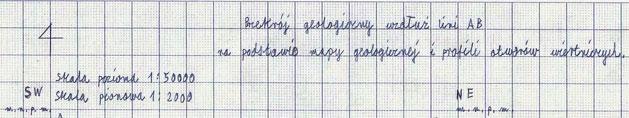 Przekrój geologiczny wzdłuż linii AB
na podstawie mapy geologicznej i profili otworów wiertniczych.
skala pozioma 1:50000
SW skala pionowa 1:2000 NE
m.n.p.m. m.n.p.m.